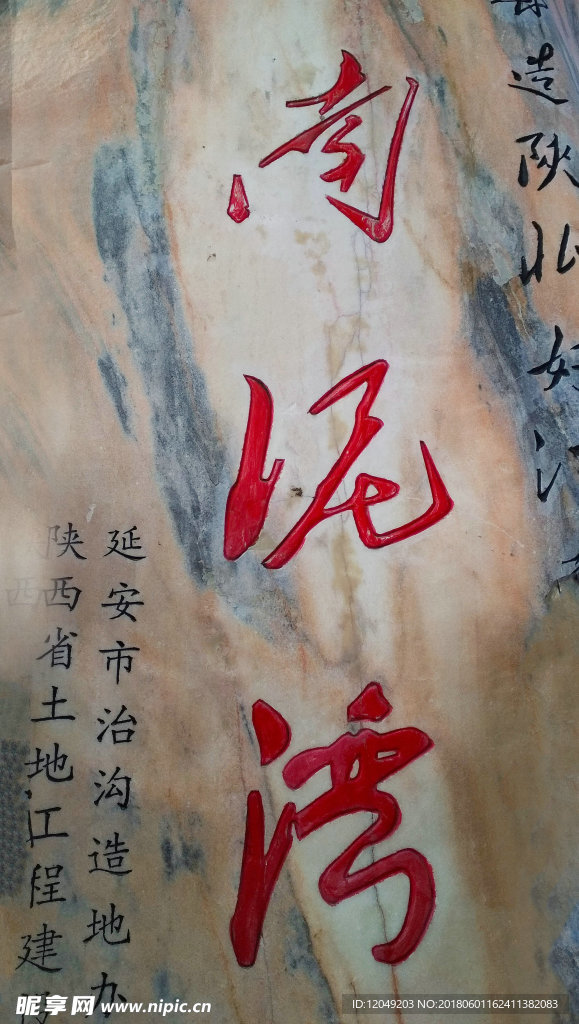 造陕北好江
南泥湾
延安市治沟造地办
陕西省土地工程建
昵享网 www.nipic.cn
ID:12049203 NO:20180601162411382083